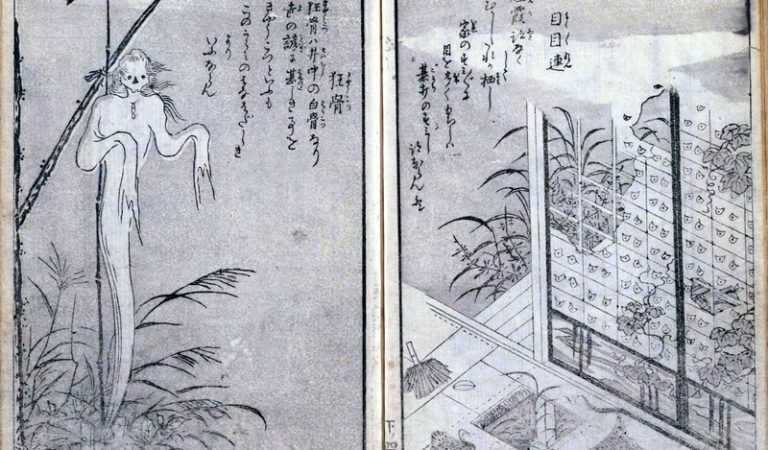 目目連
霞跡なく
して
むかしたれか栖し
家のすみ〴〵に
目を多くもちしは
碁打のすみし
跡ならんか
狂骨
狂骨ハ井中の白骨なり
世の諺に甚しき事を
きやうこつといふも
このうらみのはなはだしき
より
いふならん